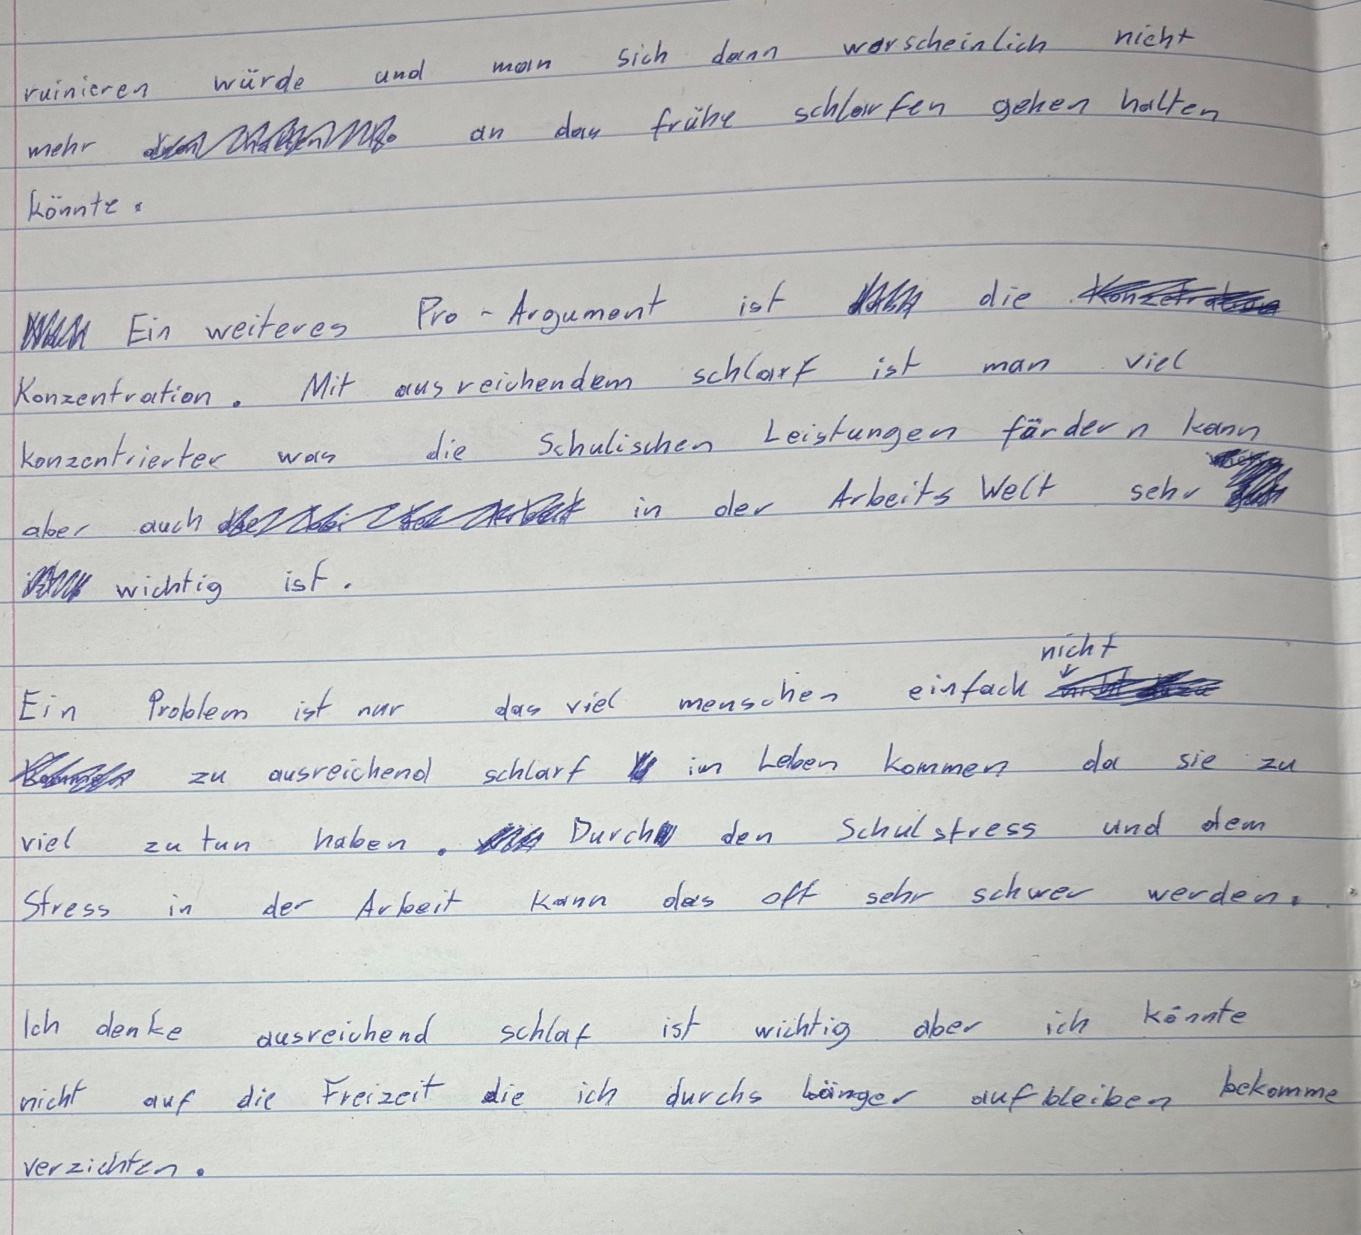 ruinieren würde und man sich dann warscheinlich nicht
mehr an das frühe schlarfen gehen halten
könnte.
Ein weiteres Pro-Argument ist die
Konzentration. Mit ausreichendem schlarf ist man viel
konzentrierter was die Schulischen Leistungen färdern kann
aber auch in der Arbeits Welt sehr
wichtig ist.
nicht
Ein Problem ist nur das viel menschen einfach
zu ausreichend schlarf im Leben kommen da sie zu
viel zu tun haben. Durch den Schulstress und dem
Stress in der Arbeit kann das oft sehr schwer werden.
Ich denke ausreichend schlaf ist wichtig aber ich könnte
nicht auf die Freizeit die ich durchs länger aufbleiben bekomme
verzichten.